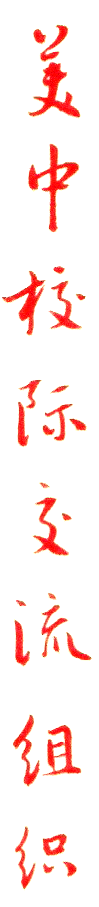 美中校际交流组织